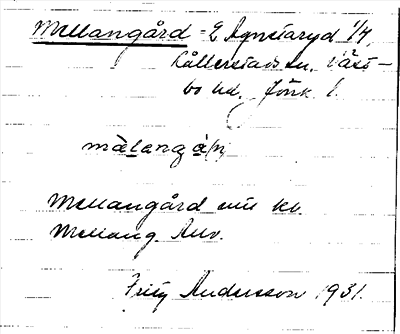 Mellangård = E Agnetaryd 1/4,
Kållerstads sn. Väst-
bo hd, Jönk. l.
màlangá/n
Mellangård enl kb.
Mellang. Allv.
Fritz Andersson 1931.